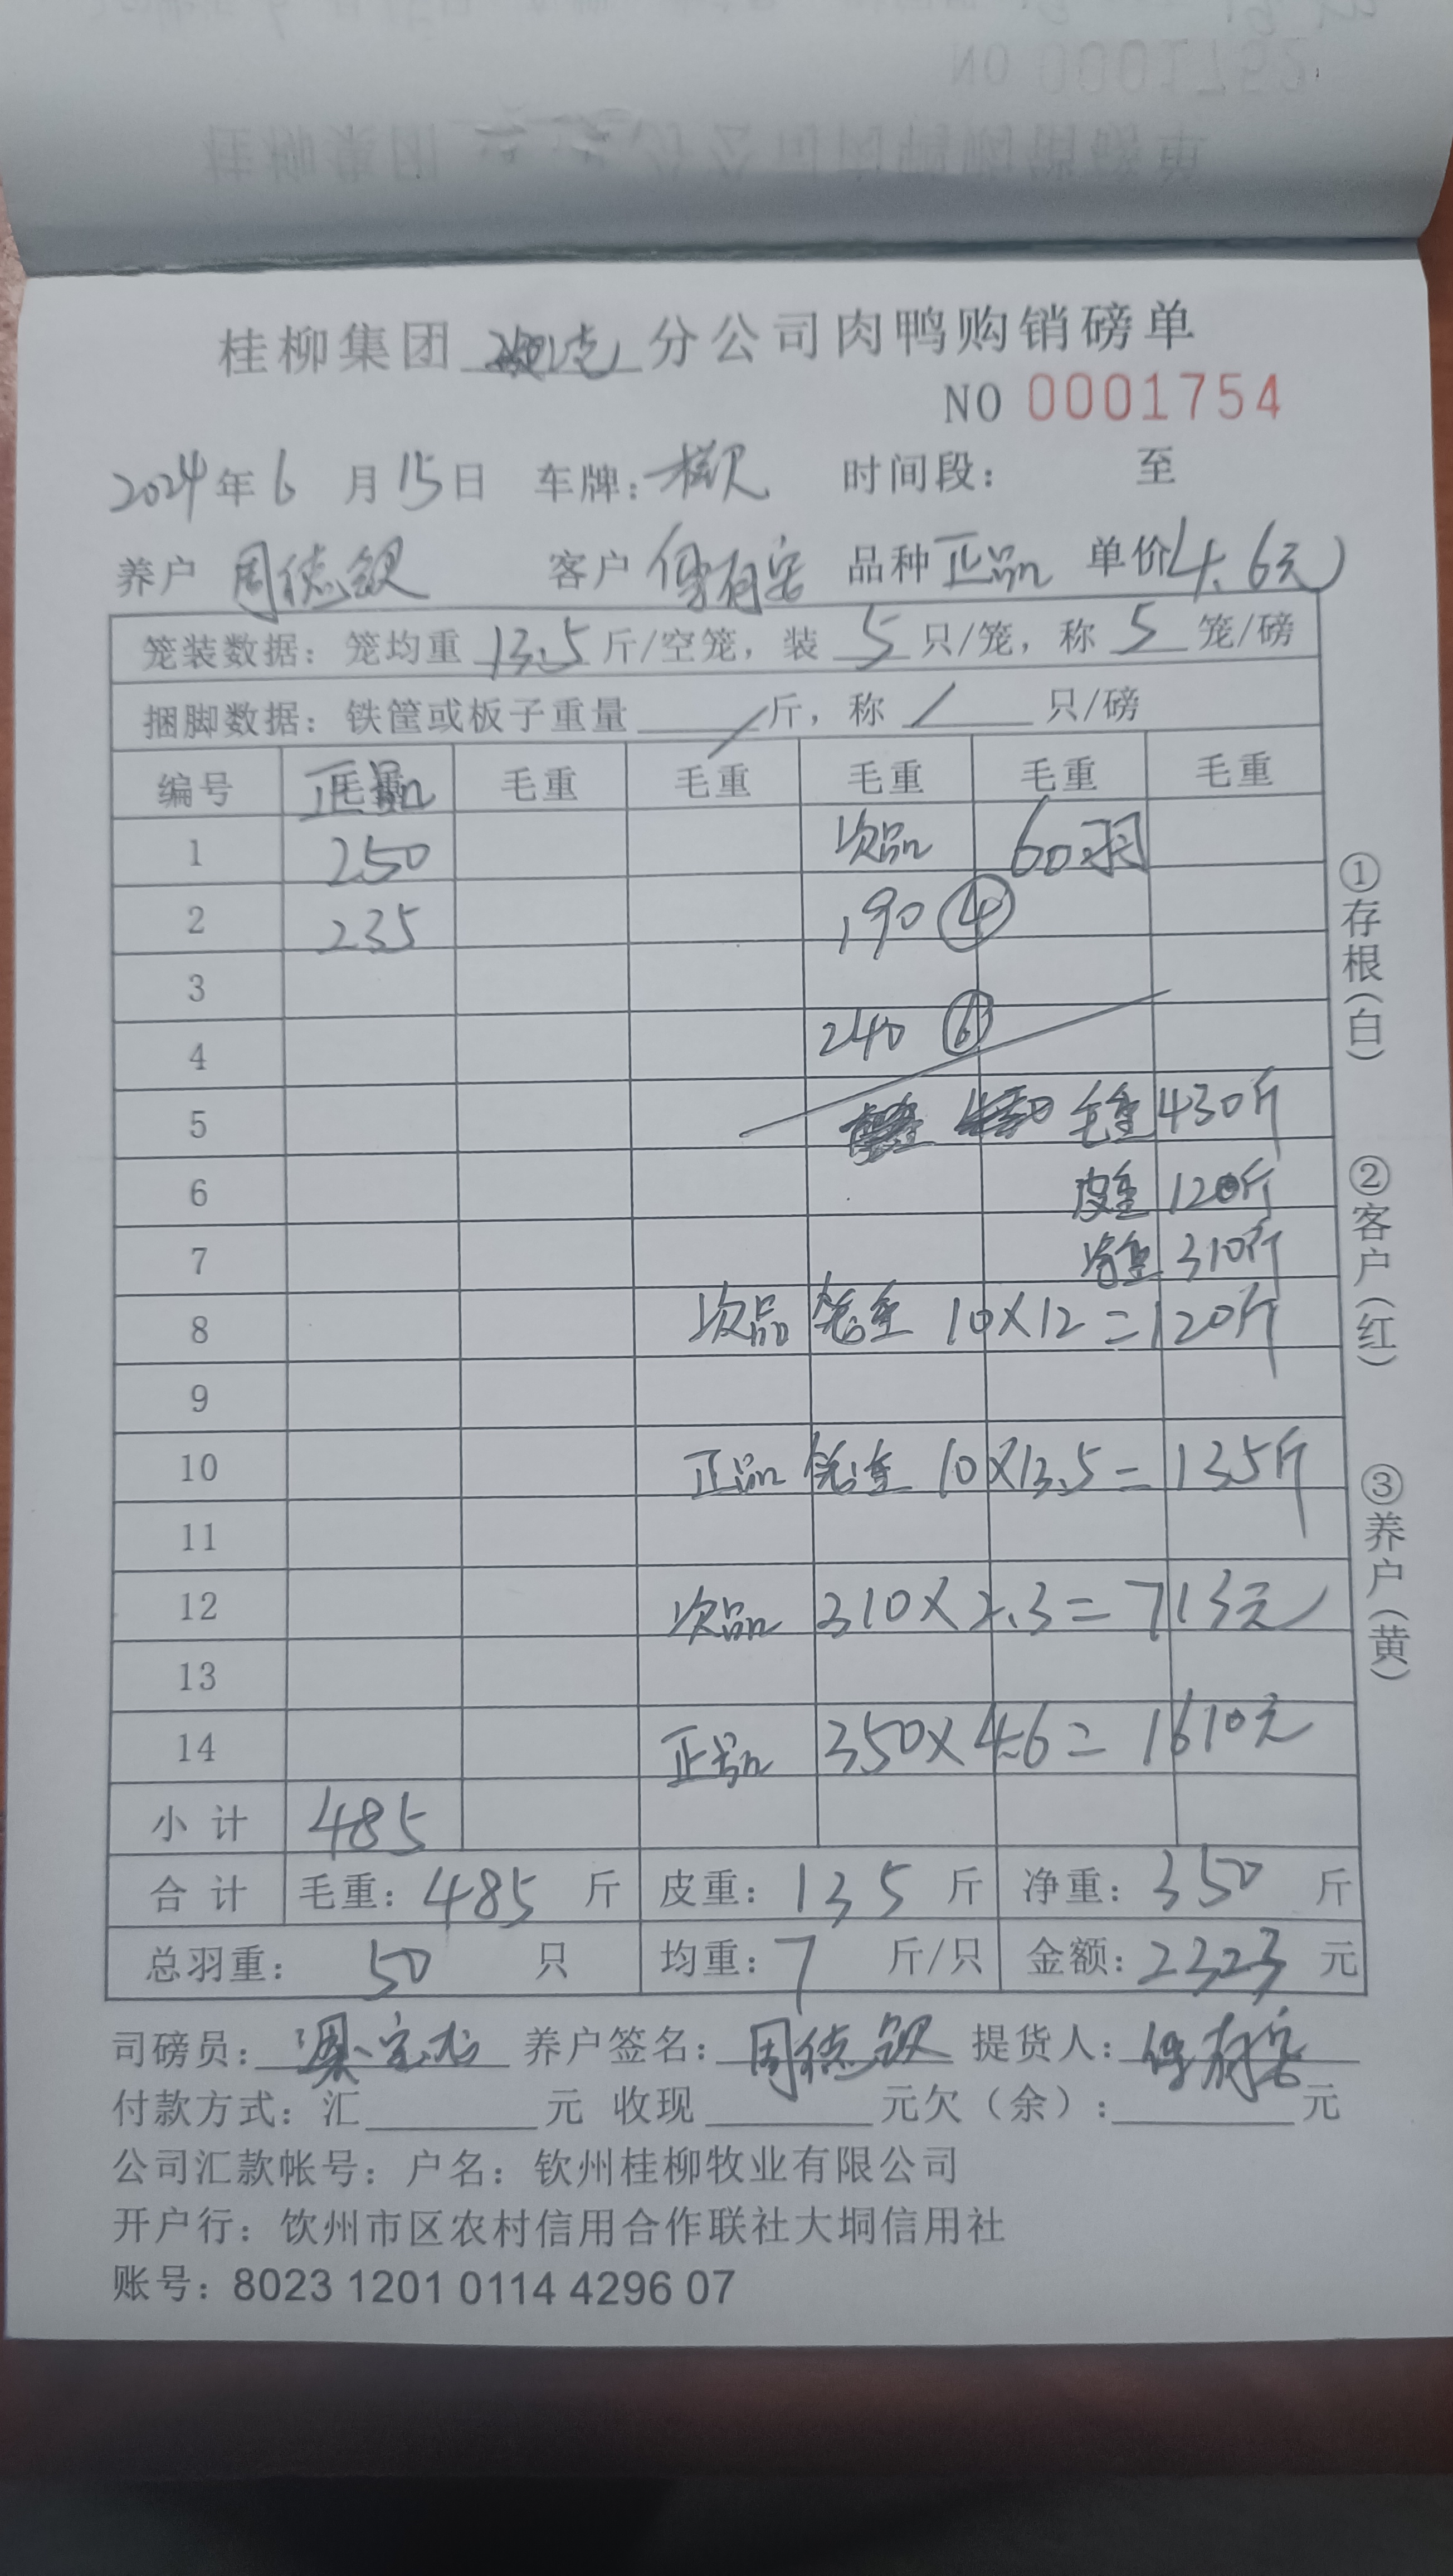 NO 0001752
桂柳集团 分公司肉鸭购销磅单
桂柳集团 分公司肉鸭购销磅单
NO 0001754
2024年6月15日 车牌: 时间段: 至
养户 周德钦 客户 傅有安 品种 正品 单价 4.6元
笼装数据: 笼均重 13.5 斤/空笼, 装 5 只/笼, 称 5 笼/磅
捆脚数据: 铁筐或板子重量 / 斤, 称 / 只/磅
编号 正品 毛重 毛重 毛重 毛重 毛重
1 250 次品 60羽
2 235 190 ④
3
4 240 ⑥
5 毛重 430斤
6 皮重 120斤
7 净重 310斤
8 次品 笼重 10×12=120斤
9
10 正品 笼重 10×13.5=135斤
11
12 次品 310×2.3=713元
13
14 正品 350×4.6=1610元
小计 485
合计 毛重: 485 斤 皮重: 135 斤 净重: 350 斤
总羽重: 50 只 均重: 7 斤/只 金额: 2323 元
①存根(白)
②客户(红)
③养户(黄)
司磅员: 养户签名: 周德钦 提货人: 傅有安
付款方式: 汇 元 收现 元欠(余): 元
公司汇款帐号: 户名: 钦州桂柳牧业有限公司
开户行: 饮州市区农村信用合作联社大垌信用社
账号: 8023 1201 0114 4296 07